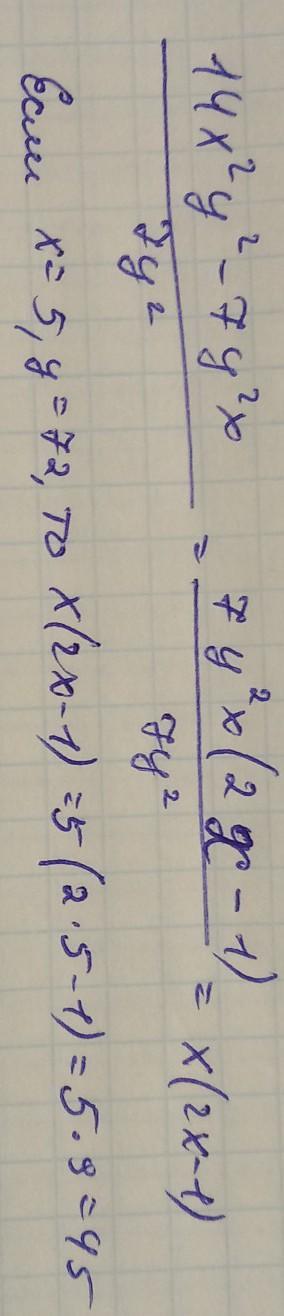 14x²y² - 7y²x / 7y² = 7y²x(2x - 1) / 7y² = x(2x-1)
Если x=5, y=72, то x(2x-1)=5(2·5-1)=5·9=45